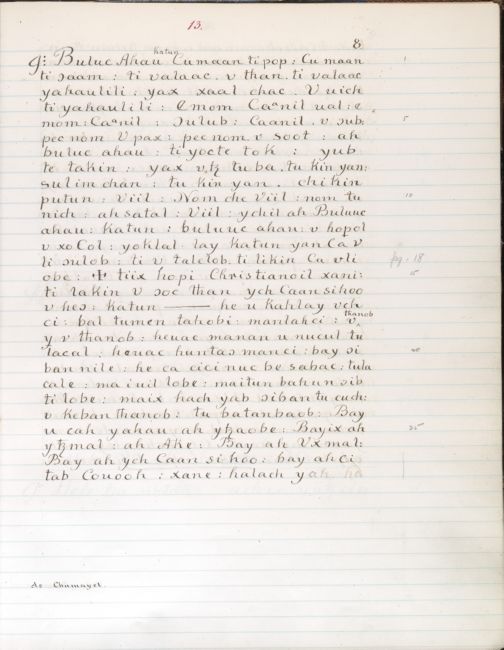 13.
8
9: Buluc Ahau Katun Cumaan ti pop : Cu maan
ti ɔaam : ti valaac . v than . ti valaac
yahaulili : yax xaal chac . V uich
ti yahaulili : Emom Caanil ual : e
mom : Caanil : ɔulub : Caanil . v ɔub :
pec nom V pax : pec nom . v soot : ah
buluc ahau : ti yocte tok : yub
te takin : yax tuba . tu kin yan :
sulim chan : tu kin yan . chikin
putun : Viil : Nom che Viil : nom tu
nich : ah satal : Viil : ychil ah Buluuc
ahau : Katun : buluuc ahau : v hopol
v xoCol : yoklal lay Katun yan Ca v
li ɔulob : ti v talelob . ti likin Ca vli
obe : ✝ tiix hopi Christianoil xani :
ti lakin v ɔoc than ych Caansihoo
v heɔ : Katun — he u Kahlay uch
ci : bal tumen tahobi : manlahci : v thanob
y v thanob : heuac manan u nucul tu
tacal : heuac huntaɔ manci : bay ɔi
ban nile : he ca cici nuc be sabac : tula
cale : ma iuil lobe : maitun bahun ɔib
ti lobe : maix hach yab ɔiban tu cuch :
v Keban thanob : tu batanbaob : Bay
u cah yahau ah ytzaobe : Bayix ah
ytzmal : ah Ake : Bay ah Vxmal :
Bay ah ych Caan si hoo : bay ah ci
tab Couooh : xane : halach yah
pg. 18
5
10
15
20
25
de Chumayel.